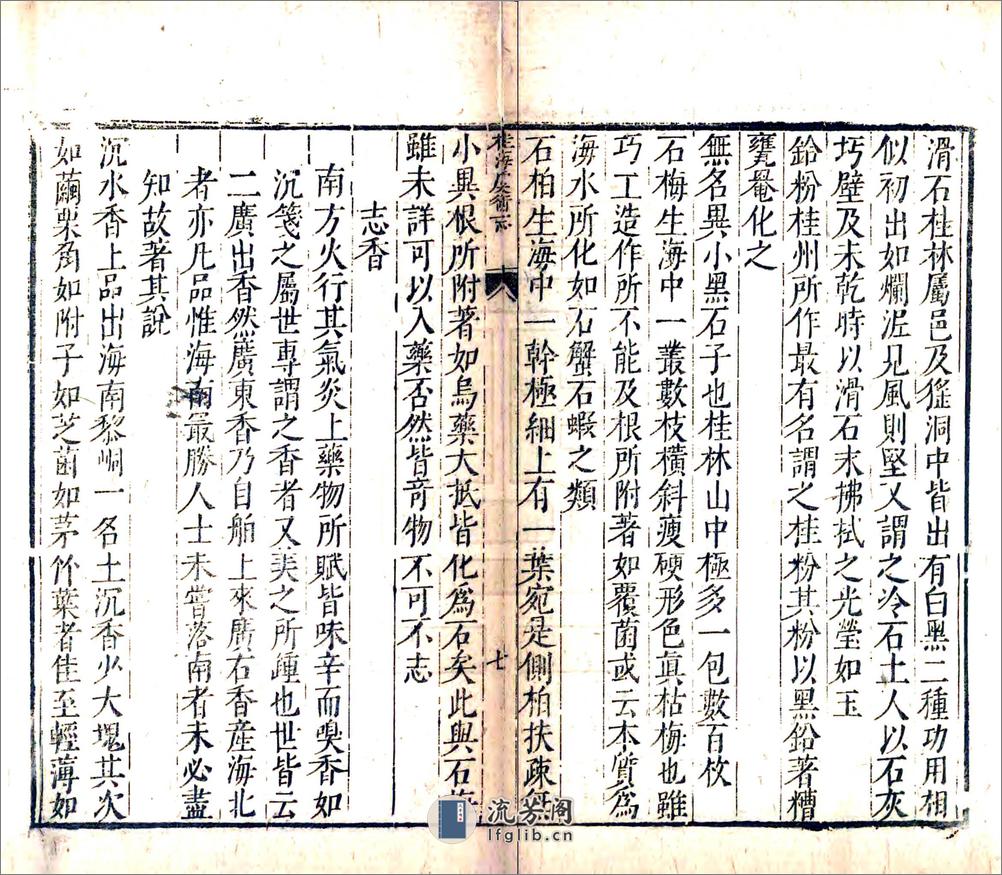 滑石桂林屬邑及猺洞中皆出有白黑二種功用相
似初出如爛泥見風則堅又謂之冷石土人以石灰
圬壁及未乾時以滑石末拂拭之光瑩如玉
鉛粉桂州所作最有名謂之桂粉其粉以黑鉛著糟
甕罨化之
無名異小黑石子也桂林山中極多一包數百枚
石梅生海中一叢數枝橫斜瘦硬形色真枯梅也雖
巧工造作所不能及根所附著如覆菌或云本質為
海水所化如石蟹石蝦之類
石柏生海中一幹極細上有一葉宛是側柏扶疎無
桂海虞衡志
七
小異根所附著如烏藥大抵皆化爲石矣此與石梅
雖未詳可以入藥否然皆奇物不可不志
志香
南方火行其氣炎上藥物所賦皆味辛而嗅香如
沉箋之屬世專謂之香者又美之所鍾也世皆云
二廣出香然廣東香乃自舶上來廣右香產海北
者亦凡品惟海南最勝人士未嘗落南者未必盡
知故著其說
沉水香上品出海南黎峒一名土沉香少大塊其次
如繭栗角如附子如芝菌如茅竹葉者佳至輕薄如
流芳阁
lfglib.cn